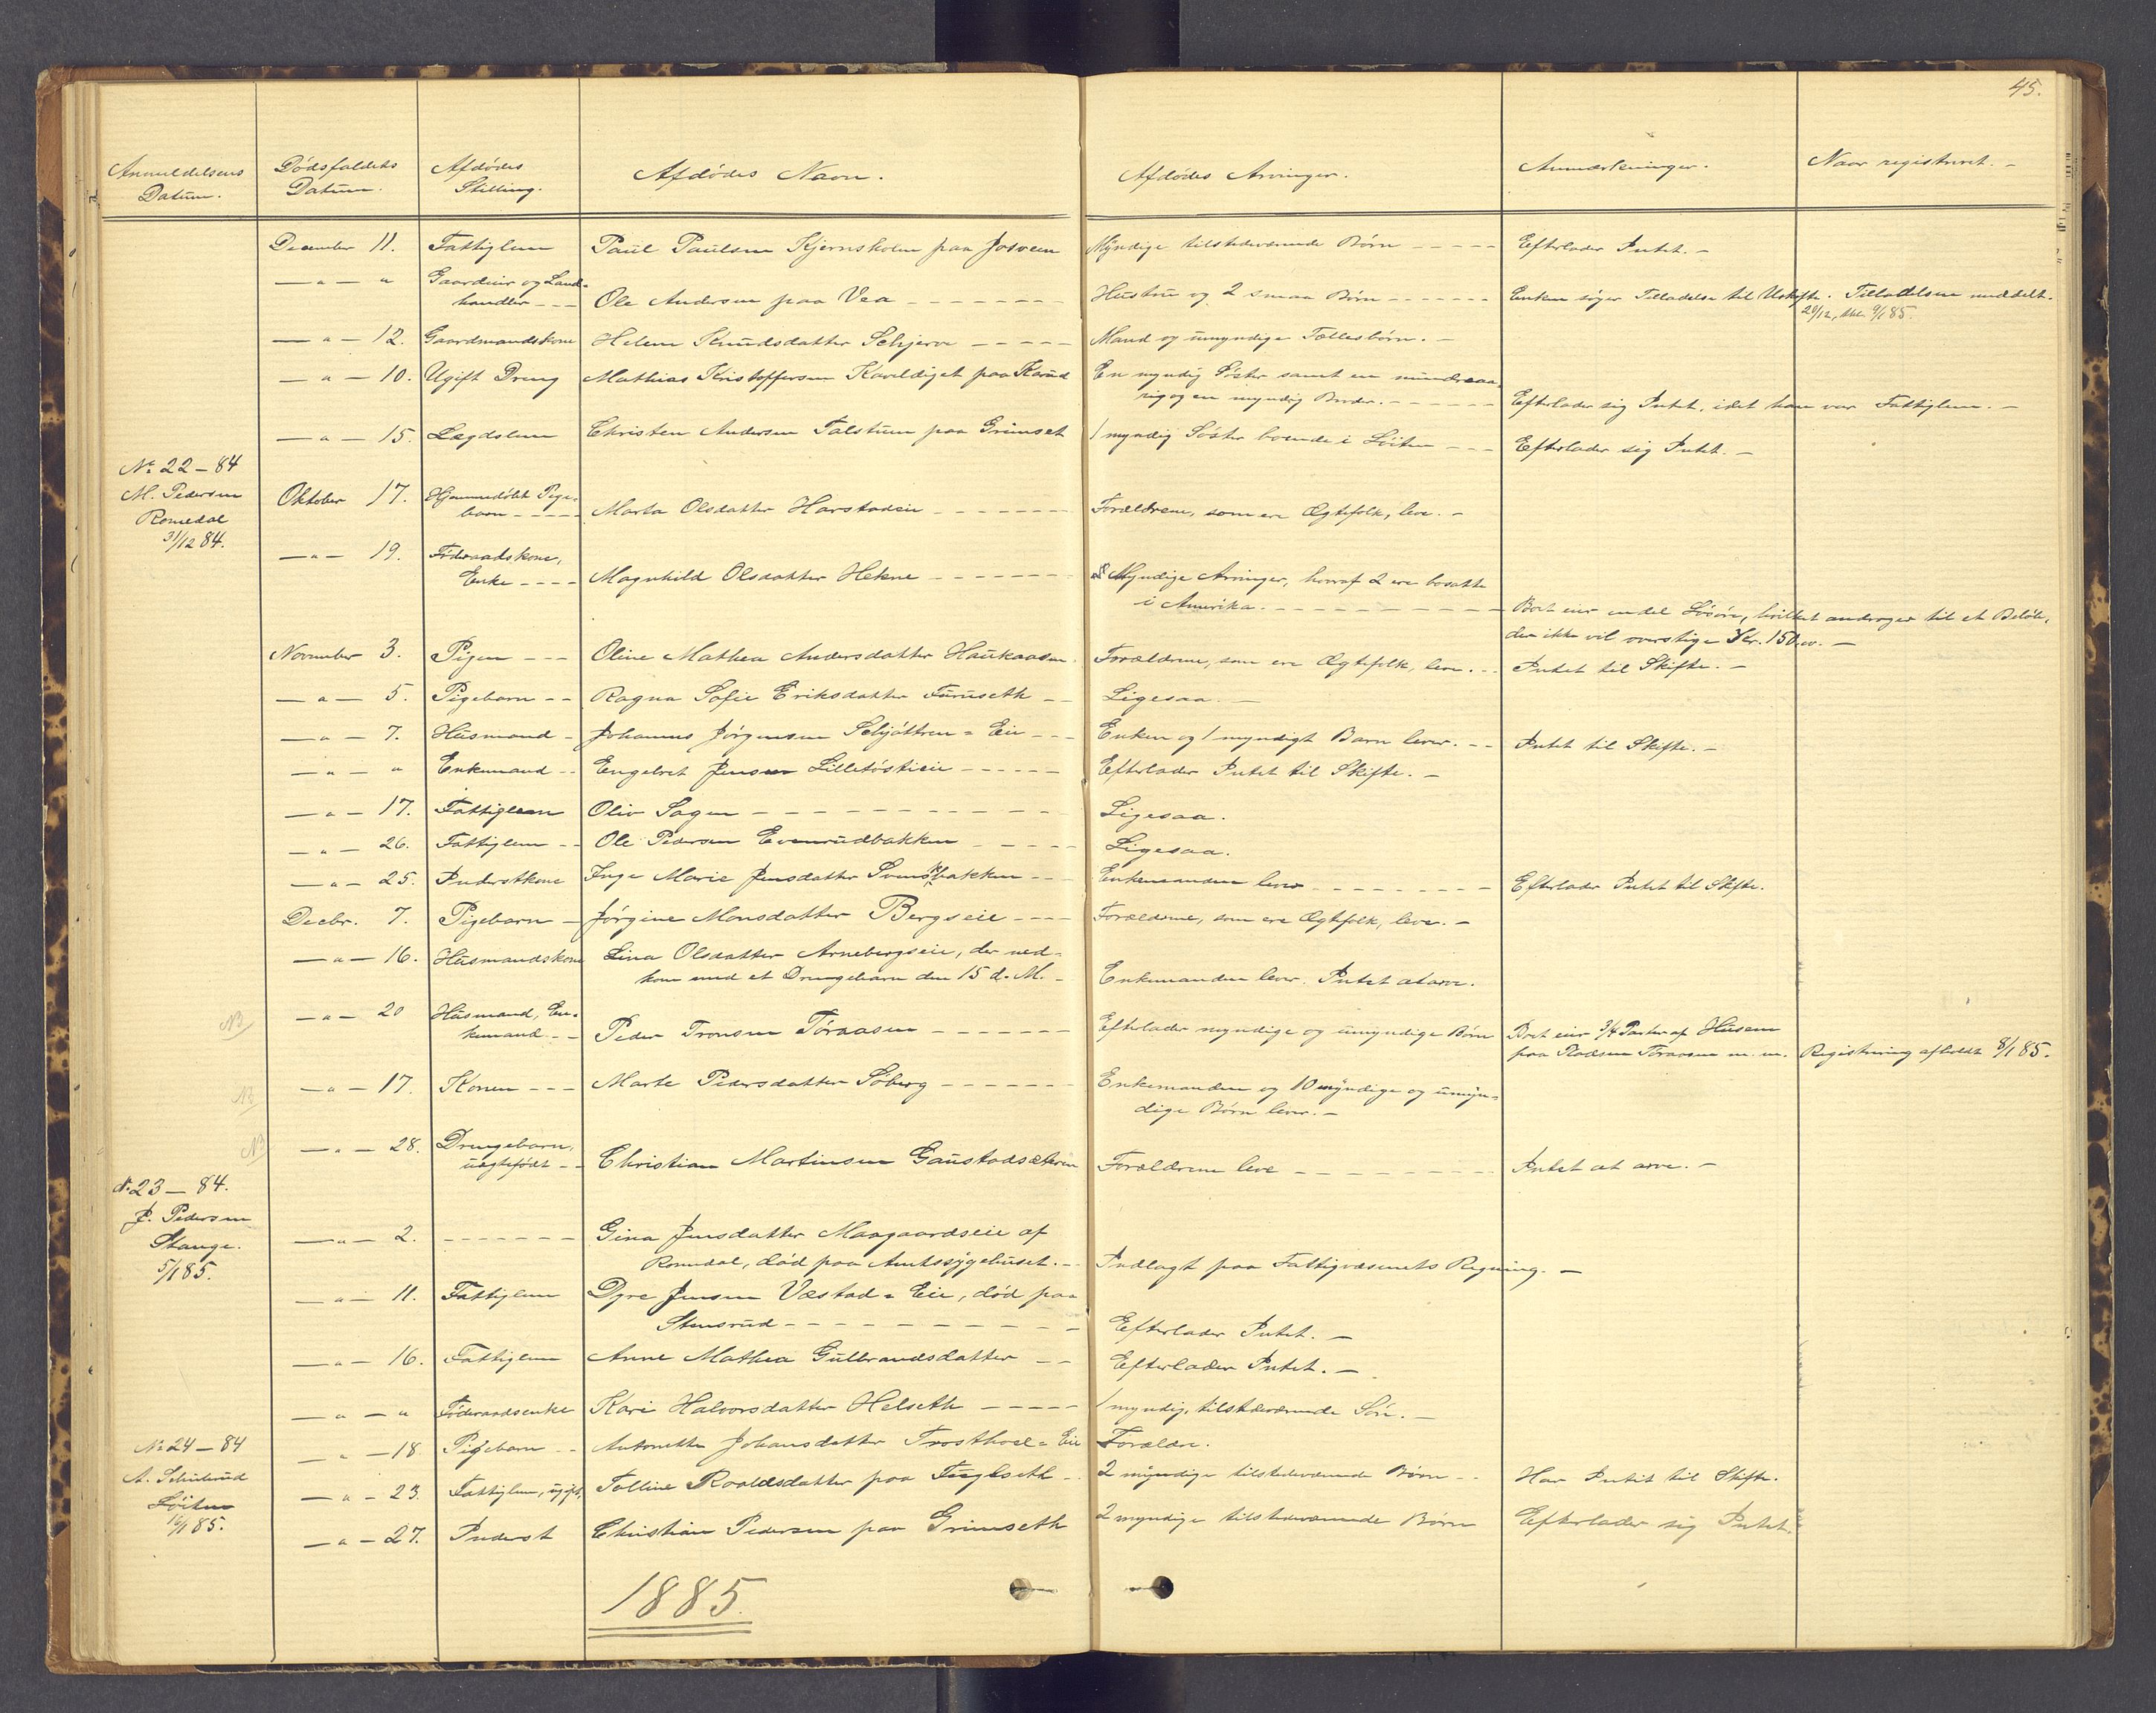 45.
Anmeldelsens Datum. Dødsfaldets Datum. Afdødes Stilling. Afdødes Navn. Afdødes Arvinger. Anmærkninger. Naar registreret. –
December 11. Fattiglem Paul Paulsen Kjernsholm paa Josveen Myndige tilstedeværende Børn - - - - - Efterlader Intet. –
— " — " Gaardeier og Land-
handler - - - Ole Andersen paa Vea - - - - - - - Hustru og 2 smaa Børn - - - - - - Enken søger Tilladelse til Uskifte. Tilladelsen meddelt.
— " — 12. Gaardmandskone Helene Knudsdatter Schjerve - - - - - Mand og umyndige Fællesbørn. –
— " — 10. Ugift Dreng Mathias Kristoffersen Kaveldiget paa Karud En myndig Søster samt en mindreaa-
rig og en myndig Broder. - - - - - - Efterlader sig Intet, idet han var Fattiglem. –
— " — 15. Lægdslem Christen Andersen Talstuen paa Grimset 1 myndig Søster boende i Løiten - - - Efterlader sig Intet. –
No 22 – 84
M. Pedersen
Romedal
31/12 84.
Oktober 17. Hjemmedøbt Pige-
barn - - - - - Marta Olsdatter Harstadeie - - - - - - - Forældrene, som ere Ægtefolk, leve. –
— " — 19. Føderaadskone,
Enke - - - - Magnhild Olsdatter Hekne - - - - - - - Myndige Arvinger, hvoraf 2 ere bosatte
i Amerika. - - - - - - - - - - - Boet eier endel Løsøre, hvilket andrager til et Beløb,
der ikke vil overstige Kr. 150,00. –
November 3. Pigen - - - Oline Mathea Andersdatter Haukaasen. Forældrene, som ere Ægtefolk, leve. - - Intet til Skifte. –
— " — 5. Pigebarn - - Ragna Sofie Eriksdatter Furuseth - - Ligesaa. –
— " — 7. Husmand - Johannes Jørgensen Schjøttren = Eie - - - Enken og 1 myndigt Barn lever. - - Intet til Skifte. –
— " — " Enkemand - - Engebret Jensen Lilletøstieie - - - - - Efterlader Intet til Skifte. –
— " — 17. Fattiglem Oliv Sagen - - - - - - - - - - Ligesaa.
— " — 26. Fattiglem - - Ole Pedersen Evenrudbakken - - - - - Ligesaa.
— " — 25. Inderstkone Inge Marie Jensdatter Svensbakken - - - Enkemanden lever - - - - - - - - Efterlader Intet til Skifte.
Decbr. 7. Pigebarn - Jørgine Monsdatter Bergseie - - - - Forældrene, som ere Ægtefolk, leve. –
— " — 16. Husmandskone Lina Olsdatter Arnebergseie, der ned-
kom med et Drengebarn den 15 d. M. - Enkemanden lever. Intet at arve.
NB — " — 20 Husmand, En-
kemand - - Peder Tronsen Tøraasen - - - - - - - Efterlader myndige og umyndige Børn Boet eier 3/4 Parter af Husene
paa Pladsen Tøraasen m. m. Registrering afholdt 8/1 85.
NB — " — 17. Konen - - - Marte Pedersdatter Søberg - - - - - - - Enkemanden og 10 myndige og umyn-
dige Børn lever. –
NB — " — 28. Drengebarn,
uægtefødt - - Christian Martinsen Gaustadsæteren Forældrene leve - - - - - - - - - Intet at arve. –
N. 23 — 84.
P. Pedersen
Stange.
5/1 85.
— " — 2. - - - - - - - Gina Jensdatter Maagaardseie af
Romedal, død paa Amtssygehuset. - Indlagt paa Fattigvæsenets Regning. –
— " — 11. Fattiglem Dyre Jensen Væstad = Eie, død paa
Stensrud - - - - - - - - - - - Efterlader Intet. –
— " — 16. Fattiglem Anne Mathea Gulbrandsdatter - - Efterlader Intet. –
— " — " Føderaadsenke Kari Halvorsdatter Helseth - - - - - 1 myndig, tilstedeværende Søn. –
No 24 – 84
A. Schulerud
Løiten
16/1 85.
— " — 18 Pigebarn - - Antonette Johansdatter Frosthoel = Eie Forældre.
— " — 23. Fattiglem, ugift, Tolline Roaldsdatter paa Fugleseth - - 2 myndige tilstedeværende Børn - - Har Intet til Skifte.
— " — 27. Inderst Christian Pedersen paa Grimseth 2 myndige tilstedeværende Børn Efterlader sig Intet.
1885.